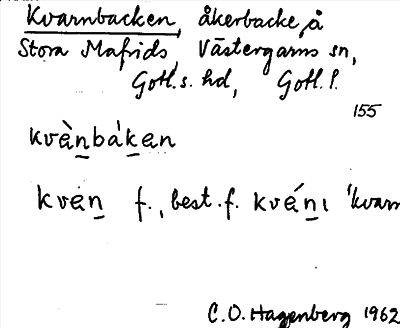 Kvarnbacken, åkerbacke, å
Stora Mafrids, Västergarns sn,
Gotl.s. hd, Gotl. l.
155
kvèn̲bák̲en
kven̲ f., best. f. kvén̲ı 'kvarn
C.O. Hagenberg 1962